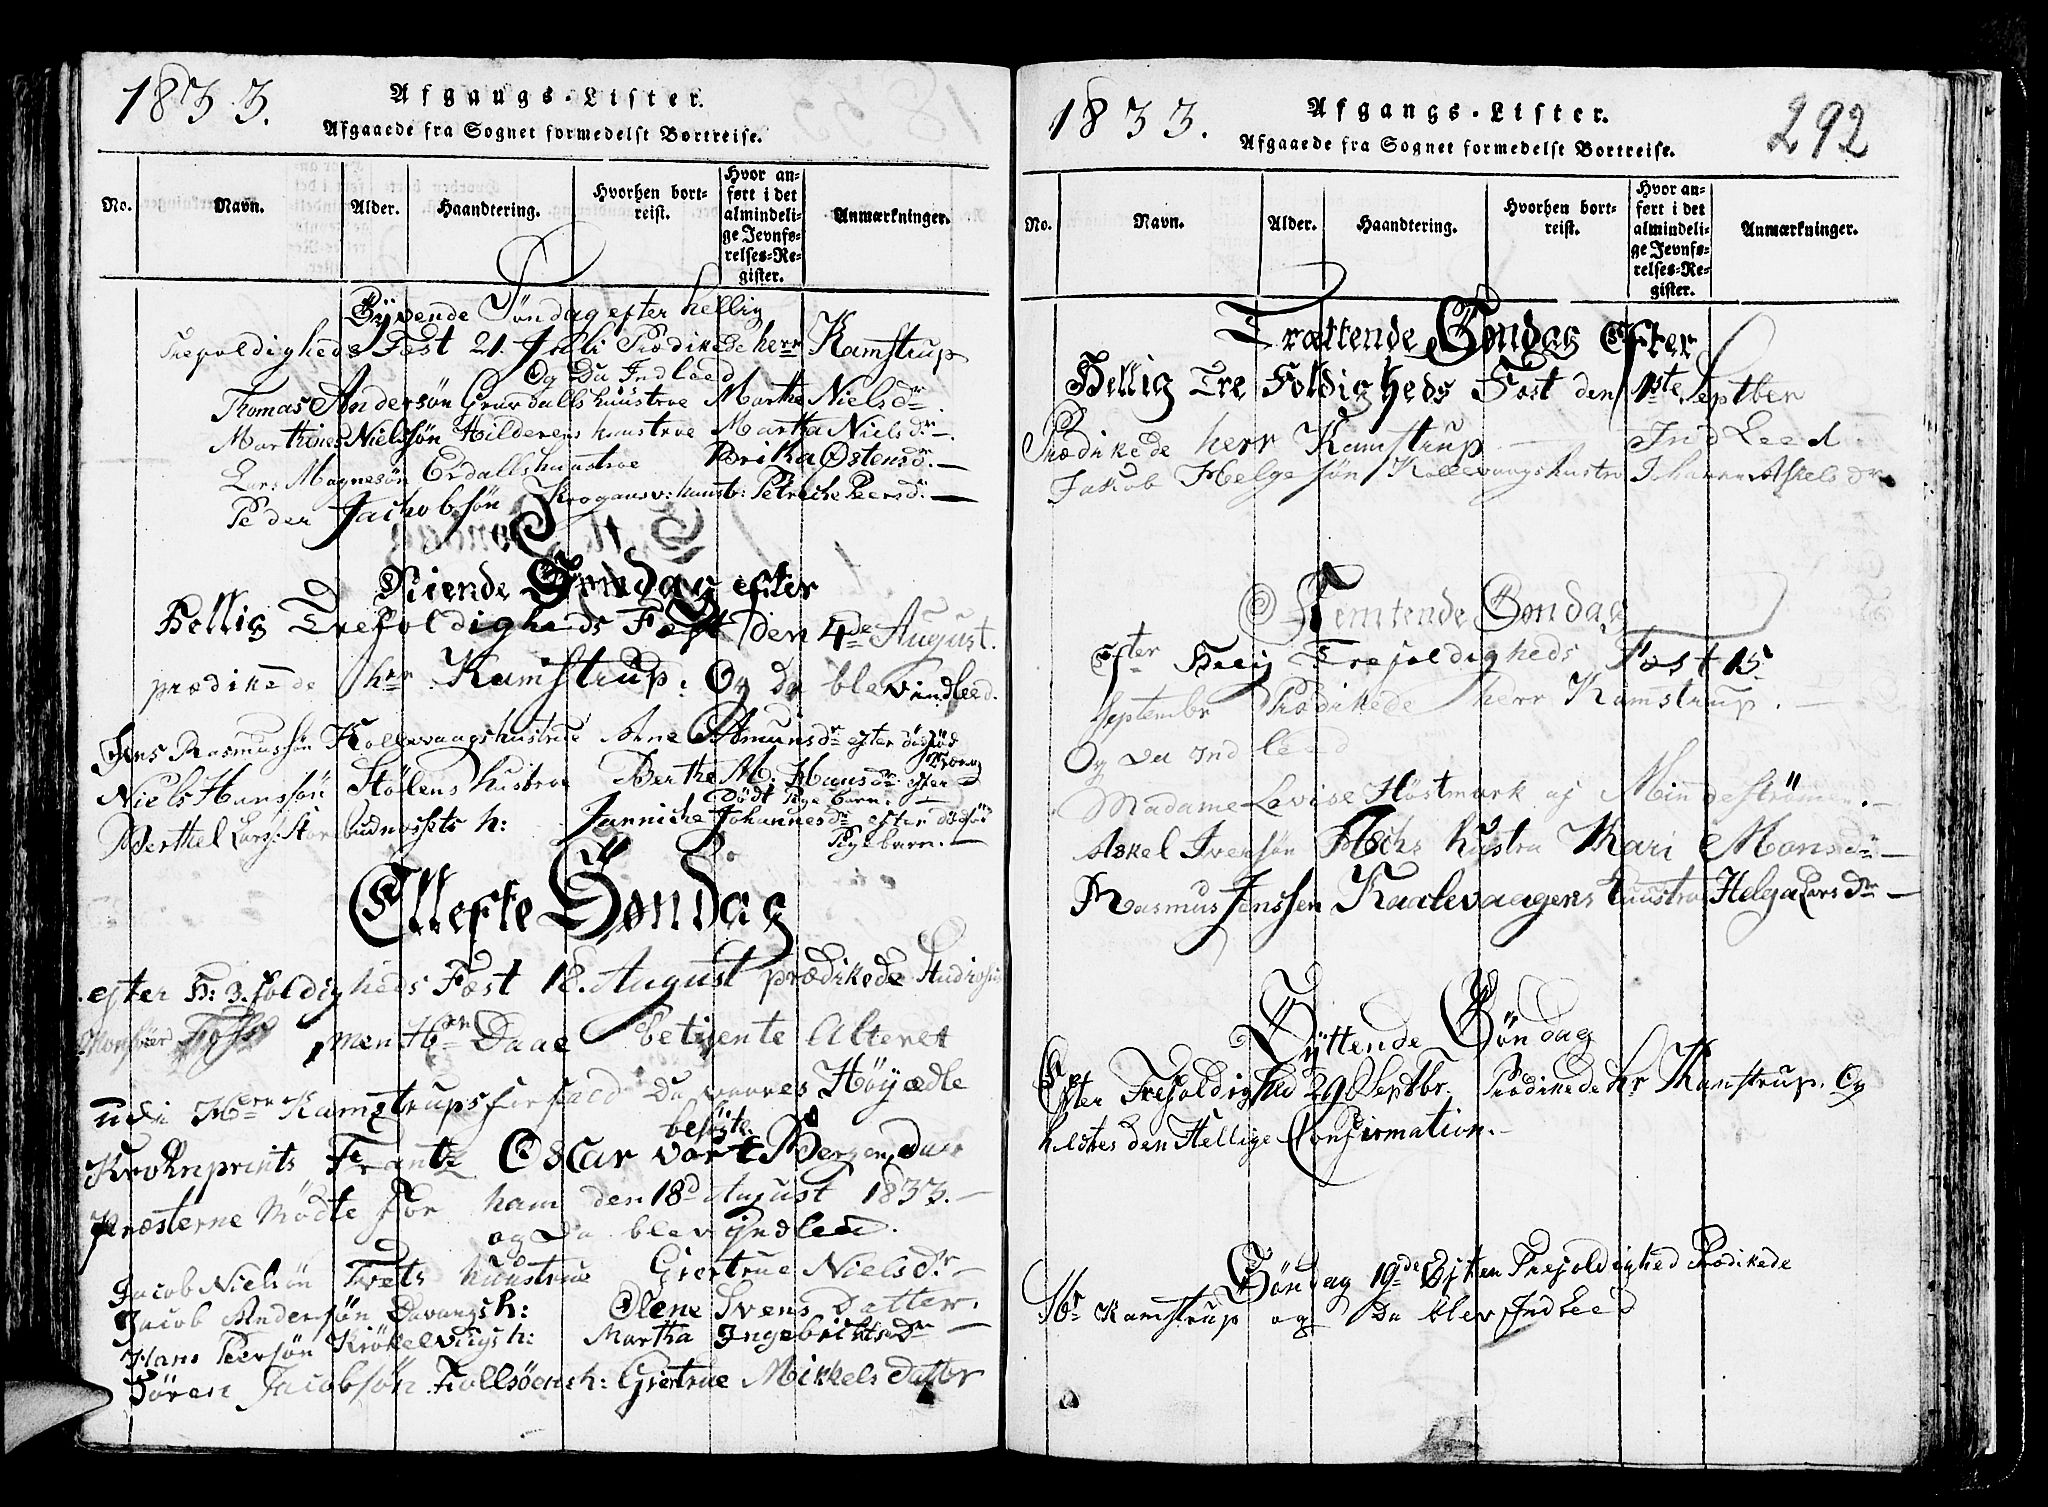 1833.
Afgangs-Lister.
Afgaaede fra Sognet formedelst Bortreise.
No.
Navn.
Alder.
Haandtering.
Hvorhen bort-
reist.
Hvor an-
ført i det
almindeli-
ge Jevnfø-
relses-Re-
gister.
Anmærkninger.
Syvende Søndag efter hellig
trefoldigheds Fest 21. Juli Prædikede herr Kamstrup
Og Da Indleed
Thomas Andersøn Gravdalls huustroe Marthe Nielsdr.
Marthines Nielssøn Hilderens huustroe Martha Nielsdr.
Lars Magnesøn Erdalls huustroe Brika Østensdr.
Peder Jachobsøn huustr: Petriche Peersd:
Niende Søndag efter
Hellig Trefoldigheds Fæst den 4de August.
prædikede hrr Kamstrup. Og da blev indleed.
Jens Rasmussøn Kollevaags hustrue Ane Amunsdr efter dødfød
Dreng
Niels Hanssøn Stølens hustroe Berthe M: Hansdr. efter
Dødt Pige Barn.
Berthel Larss: Storbudnossets h: Jannicke Johannesdr efter dødfød
Pigebarn.
Ellefte Søndag
efter H: 3.foldigheds Fæst 18. August prædikede
Foss men Hrr Daae betiente Alteret
udi Herr Kamstrups forfald Da vaares Høyædle
besøgte
Krohnprints Frantz Oscar vort Bergen, Daae
Præsterne Mødte for ham den 18d August 1833.
og Da blev indleed.
Jacob Nielsøn Tvets huustrue Giertrue Nielsdr.
Jacob Andersøn Davangs h: Olene Svens Datter.
Hans Peersøn Krøkelvaags h: Martha Ingebrichtsdr
Søren Jacobsøn Follsøens h: Giertrue Mikkels Datter
1833.
Afgangs-Lister.
292
Afgaaede fra Sognet formedelst Bortreise.
No.
Navn.
Alder.
Haandtering.
Hvorhen bort-
reist.
Hvor an-
ført i det
almindeli-
ge Jevnfø-
relses-Re-
gister.
Anmærkninger.
Trættende Søndag Efter
Hellig Tre Foldigheds Fæst den 1ste Septber
Prædikede herr Kamstrup Indleed
Jakob Helgesøn Kollevaags hustro Johanne Askelsdr
Femtende Søndag
efter Helig Trefoldigheds Fæst 15
Septembr Prædikede herr Kamstrup.
Og Da Indleed
Madame Lovise Høstmark af Mindeströmen.
Askel Iversøn Aschs hustro Kari Monsdr
Rasmus Jenssen Kaalevaagens huustro Helga Larsdr
Syttende Søndag
Efter Trefoldighed 29 Septbr. Prædikede hr Kamstrup. Og
holdtes den Hellige Confirmation.
Søndag 19de Efter Trefoldighed Prædikede
Hr Kamstrup og Da blev Indleed